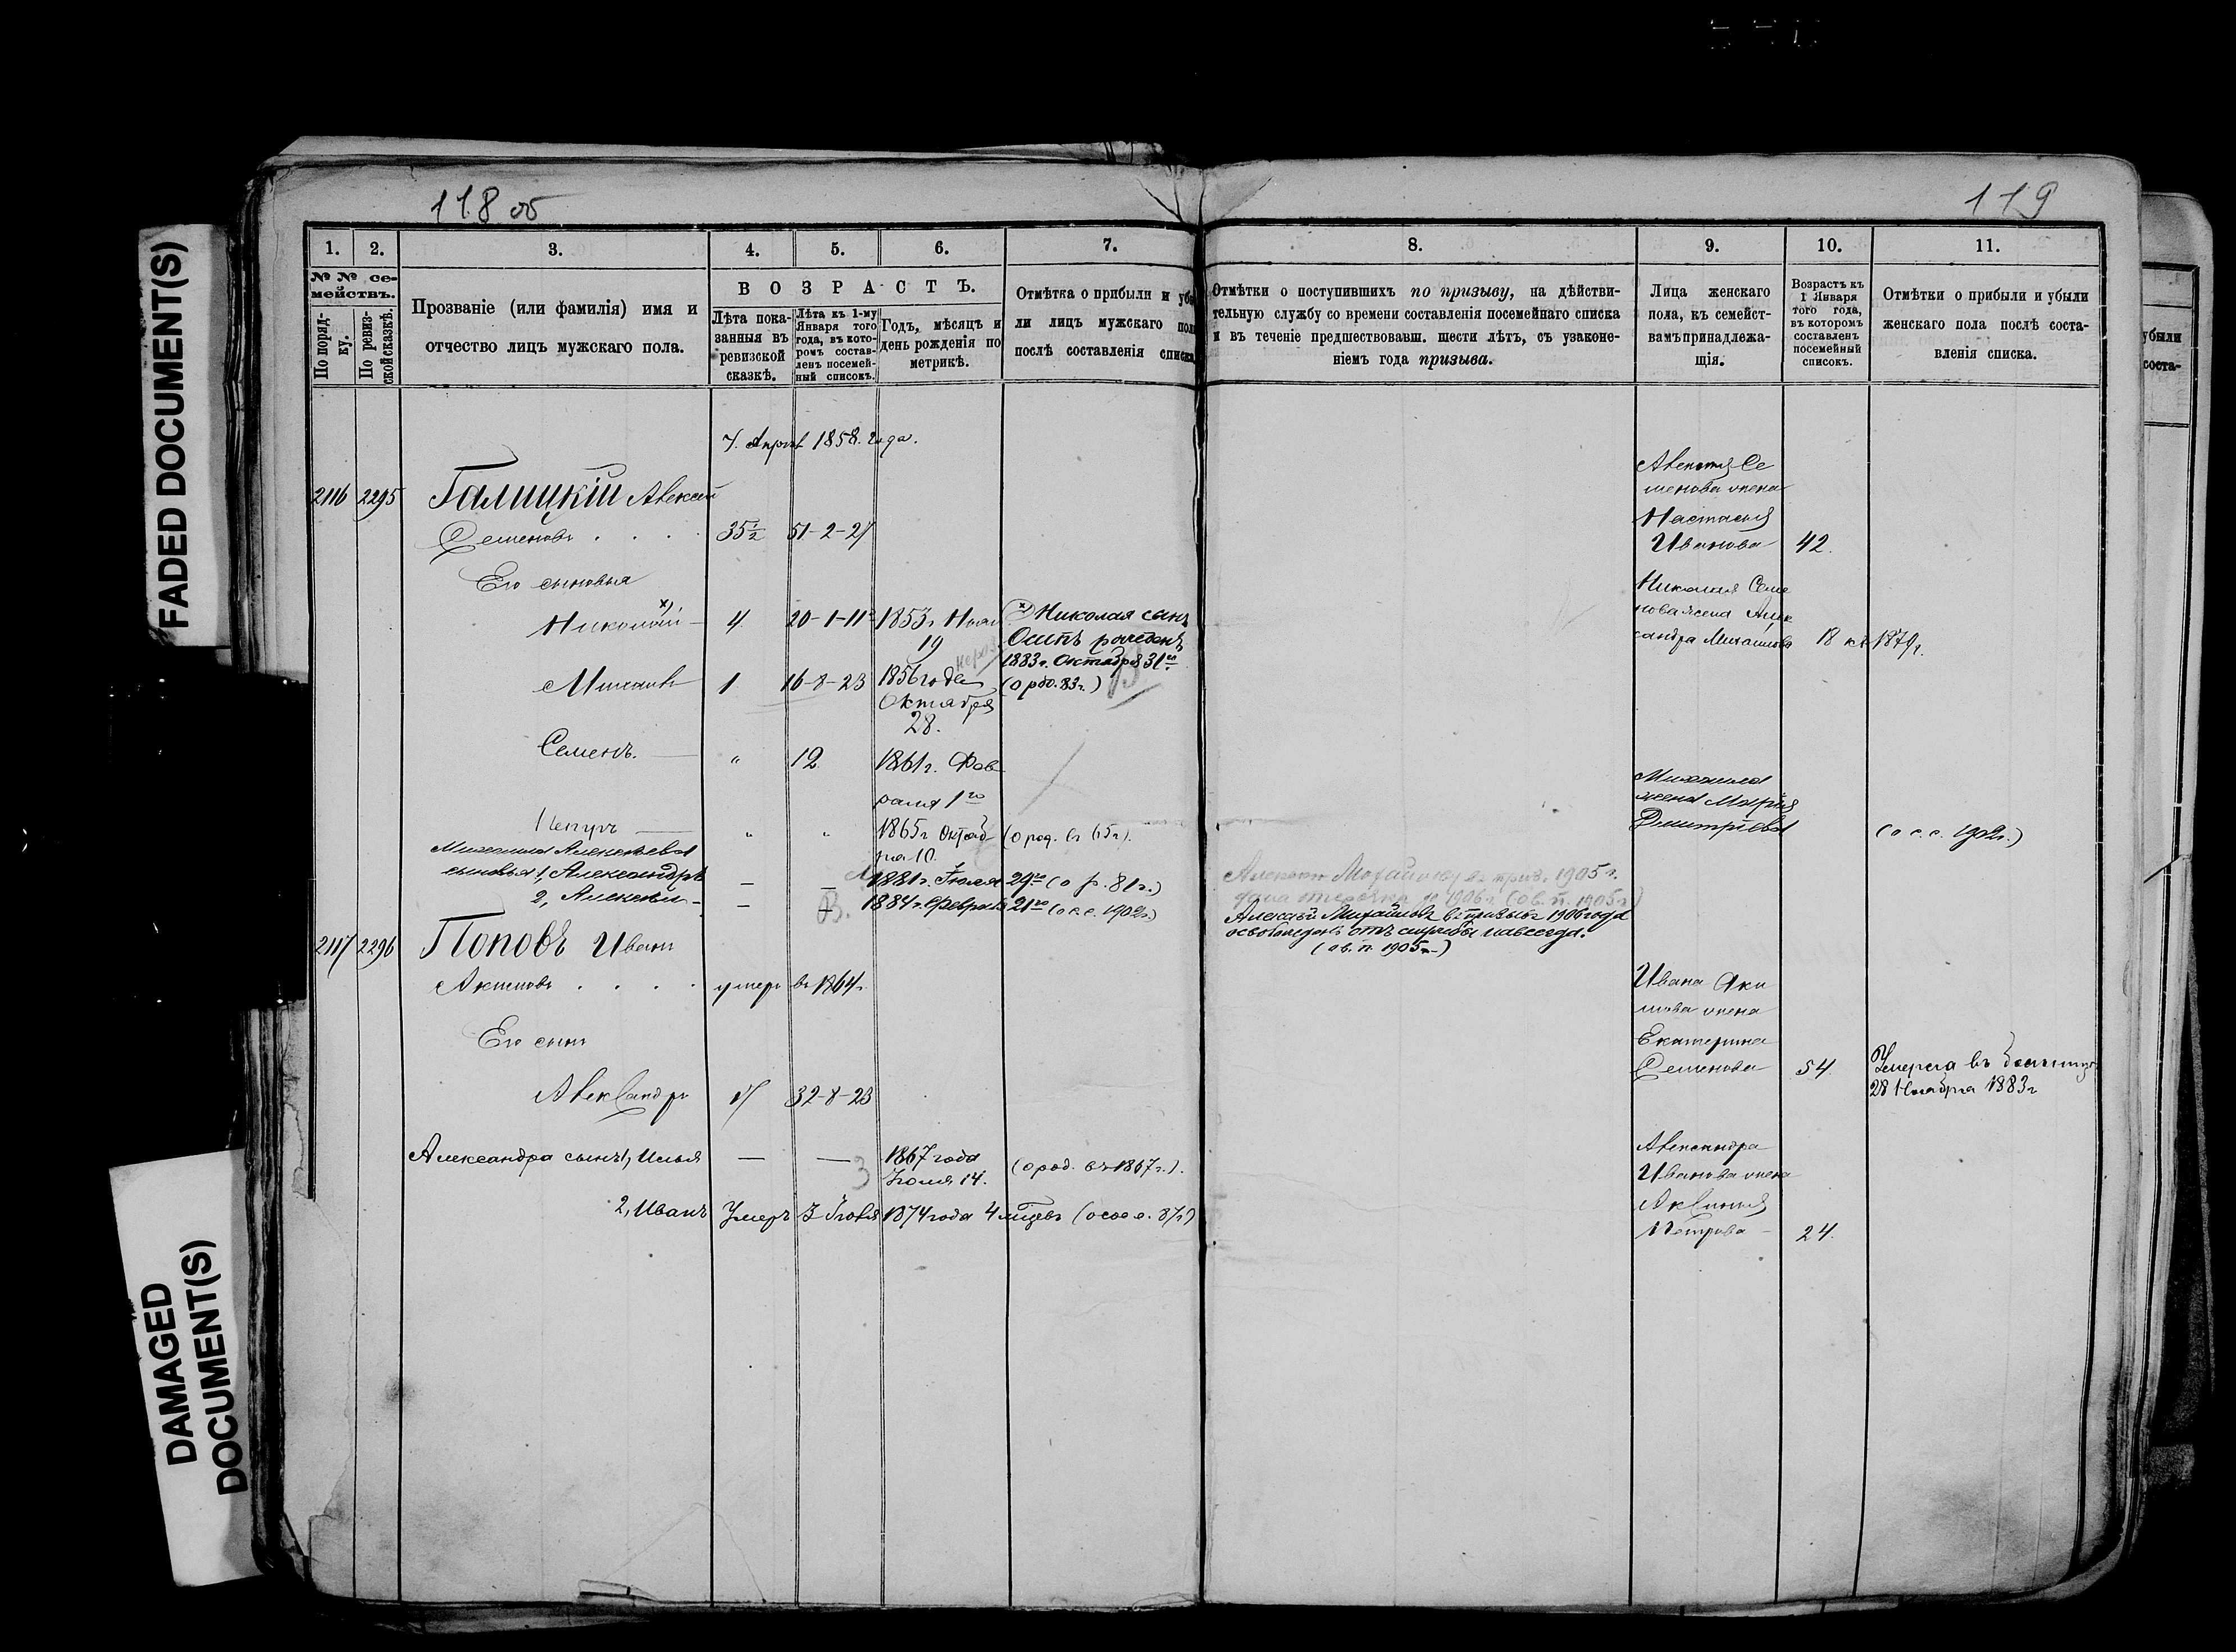 118 об
119
FADED DOCUMENT(S)
DAMAGED
DOCUMENT(S)
1. 2. 3. 4. 5. 6. 7. 8. 9. 10. 11.
№ № се-
мействъ.
По поряд-
ку.
По ревиз-
ской сказкѣ.
Прозваніе (или фамилія) имя и
отчество лицъ мужскаго пола.
ВОЗРАСТЪ.
Лѣта пока-
занныя въ
ревизской
сказкѣ.
Лѣта къ 1-му
Января того
года, въ кото-
ромъ состав-
ленъ посемей-
ный списокъ.
Годъ, мѣсяцъ и
день рожденія по
метрикѣ.
Отмѣтка о прибыли и убы
ли лицъ мужскаго пола
послѣ составленія списка
Отмѣтки о поступившихъ по призыву, на дѣйстви-
тельную службу со времени составленія посемейнаго списка
и въ теченіе предшествовавш. шести лѣтъ, съ узаконе-
ніемъ года призыва.
Лица женскаго
пола, къ семейст-
вамъ принадлежа-
щія.
Возрастъ къ
1 Января
того года,
въ которомъ
составленъ
посемейный
списокъ.
Отмѣтки о прибыли и убыли
женскаго пола послѣ соста-
вленія списка.
убыли
соста-
7. Апрѣл 1858. года.
2116 2295 Галицкій Алексѣй
Семеновъ 35 1/2 51-2-27
Его сыновья
Николай x) 4 20-1-11 1853 г. Ноя
19
x) Николая сынъ
Осипъ рожденъ
1883 г. Октября 31го
(о рдо. 83 г.)
Михаилъ 1 16-8-23 1856 года
Октября
28.
Семенъ. " 12 1861 г. Фев
раля 1го
Петръ " " 1865 г. Октяб
ря 10. (о род. въ 65 г.)
Михаила Алексѣева
сыновья 1, Александръ — — 1881 г. Іюля 29го (о р. 81 г.)
2, Алексѣй — — 1884 г. Февраля 21го (о с. с. 1902 г.)
Алексѣй Михайловъ въ призывъ 1906 года
освобожденъ отъ службы навсегда.
(ов. п. 1905 г.)
Алексѣя Се
менова жена
Настасья
Иванова 42.
Николая Семе
нова жена Алек
сандра Михайлова 18 къ 1874 г.
Михаила
жена Марія
Дмитріева (о с. с. 1902 г.)
2117 2296 Поповъ Иванъ
Акимовъ умеръ въ 1864 г.
Его сынъ
Александръ 17 32-8-23
Александра сынъ 1, Илья — — 1867 года
Іюля 14. (о род. въ 1867 г.).
2, Иванъ Умеръ 3 Іюля 1874 года 4 мѣсяцевъ
Ивана Аки
мова жена
Екатерина
Семенова 54. Умерла въ больницѣ
28 Ноября 1883 г
Александра
Иванова жена
Аксинья
Петрова 24.